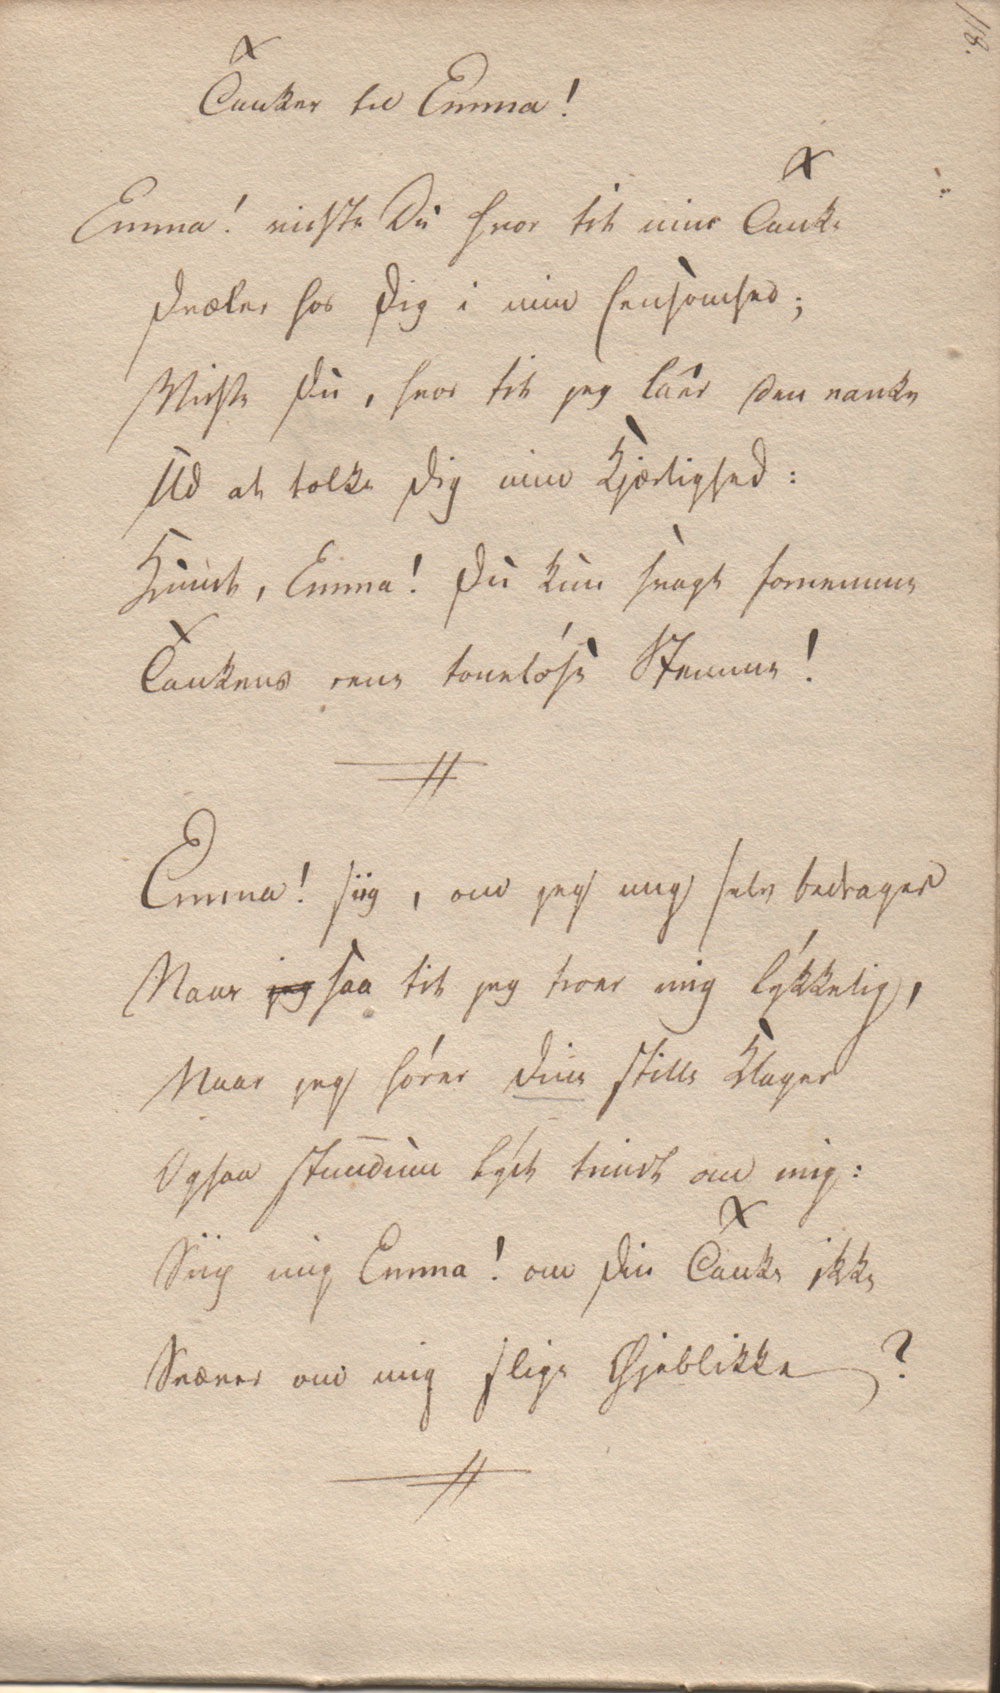 118.
Tanker til Emma!
Emma! vidste Du hvor tit min Tanke
Dvæler hos Dig i min Eensomhed;
Vidste Du, hvor tit jeg laer den vanke
Ud at tolke Dig min Kjærlighed:
Emma! Du kun svagt fornemme
Tankens rene toneløse Stemme!
Emma! siig, om jeg mig selv bedrager
Naar jeg saa tit jeg troer mig lykkelig,
Naar jeg hører dine stille Klager
Ogsaa stundum lyde trindt om mig:
Siig mig Emma! om Din Tanke ikke
Svæver om mig slige Øjeblikke?